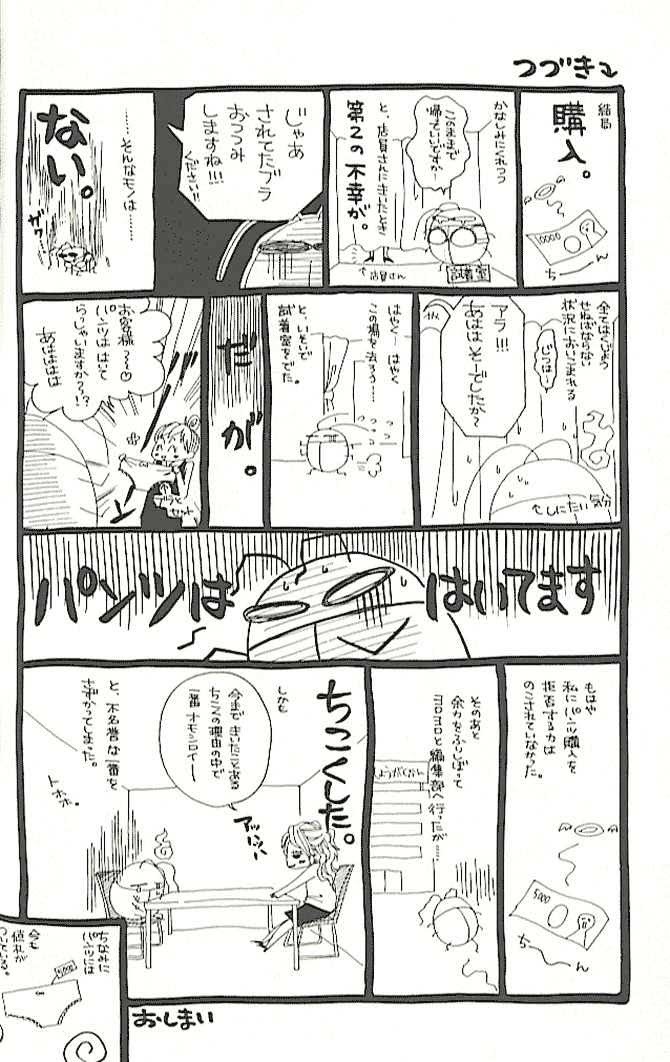 つづき
結局
購入。
10000
ちーん
かなしみにくれつつ
このままで
帰っていいですか
と、店員さんにきいたとき
第2の不幸が。
店員さん
試着室
じゃあ
されてたブラ
おつつみ
しますね!!!
ください!!
……そんなモノは……
ない。
全てはくじょう
せねばならない
状況においこまれる
じつは…
アラ!!!
あははそーでしたか～
しにたい気分
はやく…はやく
この場を去ろう…
と、いそいで
試着室をでた。
だが。
お客様～～♡
パンツははいて
らっしゃいますか～っ!?
あはははは
パンツは
はいてます
もはや
私にパンツ購入を
拒否する力は
のこされていなかった。
5000
ちーん
そのあと
余力をふりしぼって
ヨロヨロと編集部へ行ったが……
しょうがくかん
ちこくした。
しかも
今まできいたことある
ちこくの理由の中で
一番オモシロイー
アッハッハ
と、不名誉な一番を
さずかってしまった。
トホホ。
ちなみに
パンツには
今も
値札が
ついている。
5000
おしまい